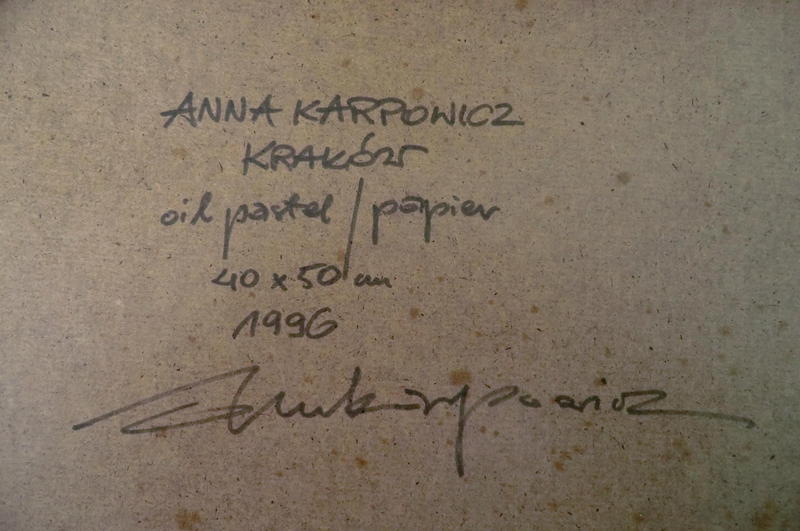 ANNA KARPOWICZ
KRAKÓW
oil pastel / papier
40 x 50 cm
1996
AnnKarpowicz